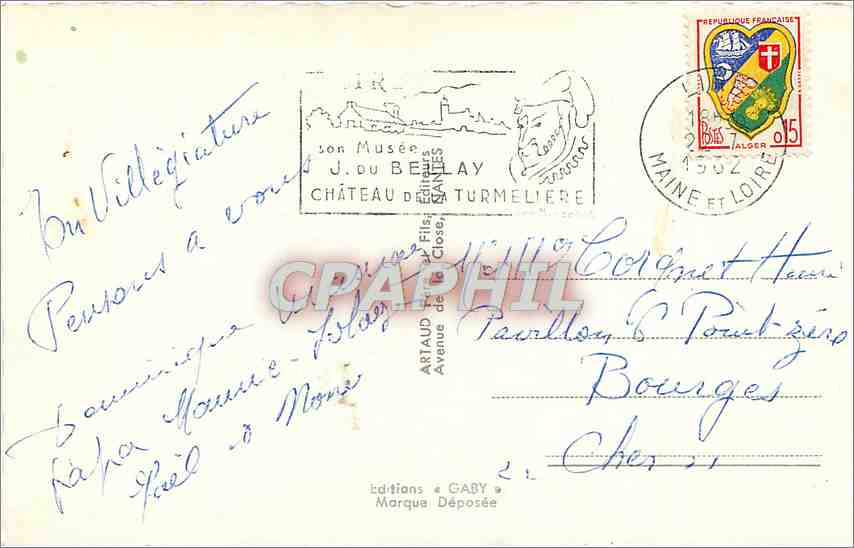 REPUBLIQUE FRANÇAISE
POSTES ALGER 0,15
LIRÉ
18H
1962
MAINE ET LOIRE
son Musée
J. DU BELLAY
CHÂTEAU DE LA TURMELIERE
En Villégiature
Pensons a vous
Dominique
papa Maurice - 
Noël &
ARTAUD Père et Fils, Editeurs
Avenue de la Close, NANTES
CPAPHIL
Mr Mme Coignet Henri
Pavillon 6 Point-zéro
Bourges
Cher
Editions « GABY »
Marque Déposée